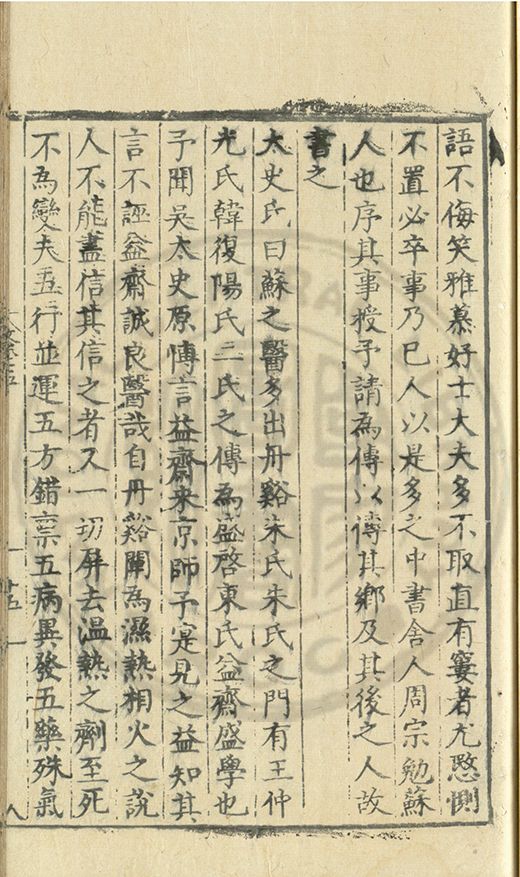 語不侮笑雅慕好士大夫多不取直有窶者尤愍惻
不置必卒事乃已人以是多之中書舍人周宗勉蘇
人也序其事授予請為傳以傳其鄉及其後之人故
書之
太史氏曰蘇之醫多出丹谿朱氏朱氏之門有王仲
光氏韓復陽氏二氏之傳為盛啓東氏益齋盛學也
予聞吳太史原愽言益齋来京師予寔見之益知其
言不誣益齋誠良醫哉自丹谿闡為濕熱相火之說
人不能盡信其信之者又一切屏去温熱之劑至死
不為變夫五行並運五方錯禀五病異發五藥殊氣